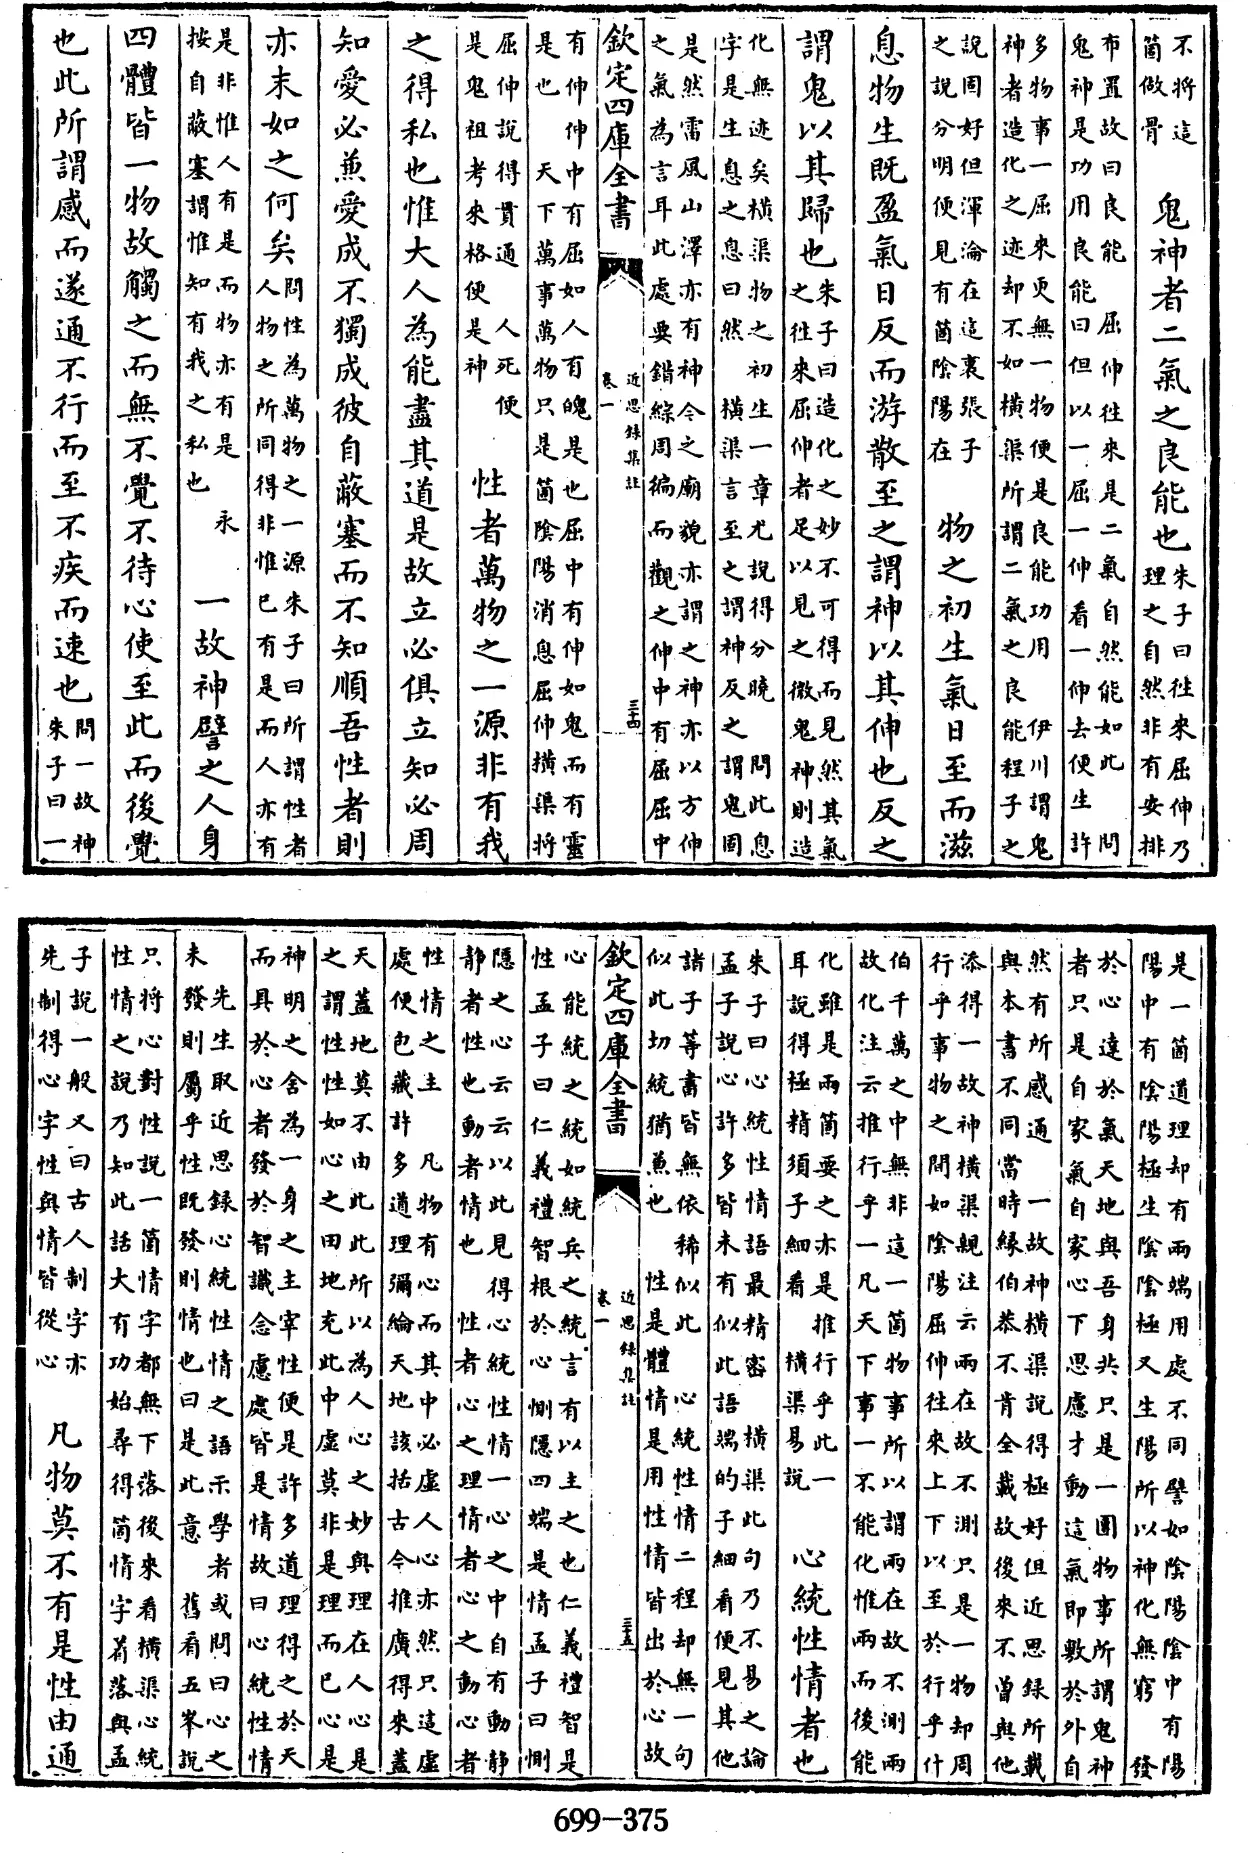 不將這箇做骨 鬼神者二氣之良能也 朱子曰往來屈伸乃理之自然非有安排
布置故曰良能 屈伸往來是二氣自然能如此 問
鬼神是功用良能曰但以一屈一伸看一伸去便生許
多物事一屈來更無一物便是良能功用 伊川謂鬼
神者造化之迹却不如橫渠所謂二氣之良能程子之
說固好但渾淪在這裏張子之說分明便見有箇陰陽在 物之初生氣日至而滋
息物生既盈氣日反而游散至之謂神以其伸也反之
謂鬼以其歸也 朱子曰造化之妙不可得而見然其氣之往來屈伸者足以見之微鬼神則造
化無迹矣橫渠物之初生一章尤說得分曉 問此息
字是生息之息曰然 橫渠言至之謂神反之謂鬼固
是然雷風山澤亦有神今之廟貌亦謂之神亦以方伸
之氣為言耳此處要錯綜周徧而觀之伸中有屈屈中
欽定四庫全書 近思録集註 卷一 三十四
有伸伸中有屈如人有魄是也屈中有伸如鬼而有靈
是也 天下萬事萬物只是箇陰陽消息屈伸橫渠將
屈伸說得貫通 人死便是鬼祖考來格便是神 性者萬物之一源非有我
之得私也惟大人為能盡其道是故立必俱立知必周
知愛必兼愛成不獨成彼自蔽塞而不知順吾性者則
亦末如之何矣 問性為萬物之一源朱子曰所謂性者人物之所同得非惟已有是而人亦有
是非惟人有是而物亦有是 永按自蔽塞謂惟知有我之私也 一故神譬之人身
四體皆一物故觸之而無不覺不待心使至此而後覺
也此所謂感而遂通不行而至不疾而速也 問一故神朱子曰一
是一箇道理却有兩端用處不同譬如陰陽陰中有陽
陽中有陰陽極生陰陰極又生陽所以神化無窮 發
於心達於氣天地與吾身共只是一團物事所謂鬼神
者只是自家氣自家心下思慮才動這氣即敷於外自
然有所感通 一故神橫渠說得極好但近思録所載
與本書不同當時緣伯恭不肯全載故後來不曾與他
添得一故神橫渠親注云兩在故不測只是一物却周
行乎事物之間如陰陽屈伸往來上下以至於行乎什
伯千萬之中無非這一箇物事所以謂兩在故不測兩
故化注云推行乎一凡天下事一不能化惟兩而後能
化雖是兩箇要之亦是推行乎此一耳說得極精須子細看 橫渠易說 心統性情者也
朱子曰心統性情語最精密 橫渠此句乃不易之論
孟子說心許多皆未有似此語端的子細看便見其他
諸子等書皆無依稀似此 心統性情二程却無一句
似此切統猶兼也 性是體情是用性情皆出於心故
欽定四庫全書 近思録集註 卷一 三十五
心能統之統如統兵之統言有以主之也仁義禮智是
性孟子曰仁義禮智根於心惻隱四端是情孟子曰惻
隱之心云云以此見得心統性情一心之中自有動靜
靜者性也動者情也 性者心之理情者心之動心者
性情之主 凡物有心而其中必虛人心亦然只這虛
處便包藏許多道理彌綸天地該括古今推廣得來蓋
天蓋地莫不由此此所以為人心之妙與理在人心是
之謂性性如心之田地充此中虛莫非是理而已心是
神明之舍為一身之主宰性便是許多道理得之於天
而具於心者發於智識念慮處皆是情故曰心統性情
先生取近思録心統性情之語示學者或問曰心之
未發則屬乎性既發則情也曰是此意 舊看五峯說
只將心對性說一箇情字都無下落後來看橫渠心統
性情之說乃知此話大有功始尋得箇情字着落與孟
子說一般又曰古人制字亦先制得心字性與情皆從心 凡物莫不有是性由通
699-375